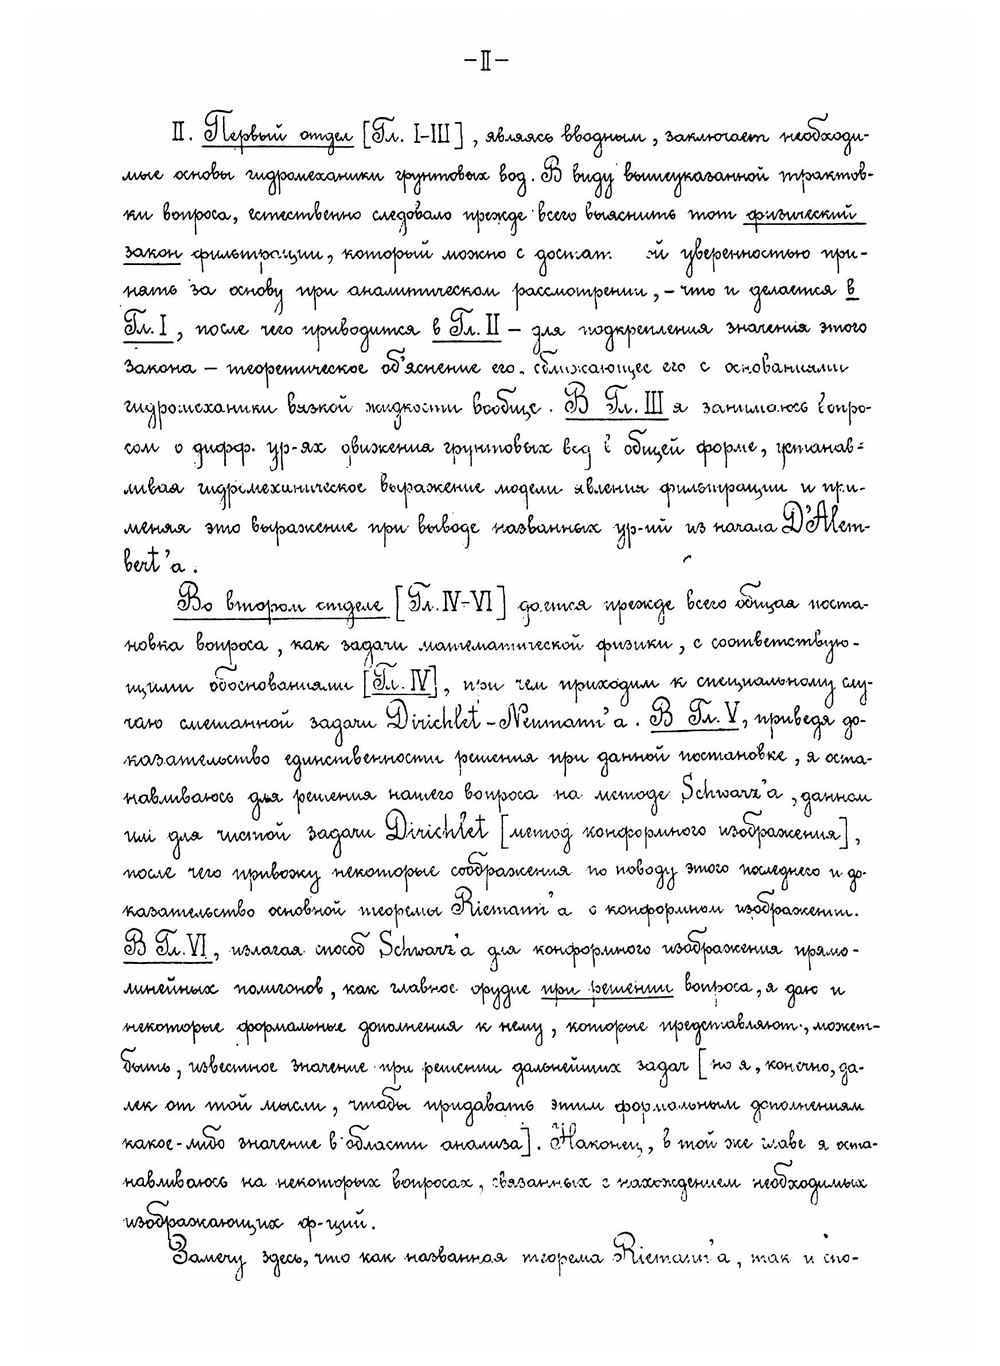 –II–
II. Первый отдел [Гл. I–III], являясь вводным, заключает необходи-
мые основы гидромеханики грунтовых вод. В виду вышеуказанной трактов-
ки вопроса, естественно следовало прежде всего выяснить тот физический
закон фильтрации, который можно с уверенностью при-
нять за основу при аналитическом рассмотрении, – что и делается в
Гл. I, после чего приводится в Гл. II – для подкрепления значения этого
закона – теоретическое об'яснение его, сближающее его с основаниями
гидромеханики вязкой жидкости вообще. В Гл. III я занимаюсь вопро-
сом о дифф. ур-ях движения грунтовых вод в общей форме, устанав-
ливая гидромеханическое выражение модели явления фильтрации и при-
меняя это выражение при выводе названных ур-ий из начала D'Alem-
bert'a.
Во втором отделе [Гл. IV–VI] дается прежде всего общая поста-
новка вопроса, как задачи математической физики, с соответствую-
щими обоснованиями [Гл. IV], при чем приходим к специальному слу-
чаю смешанной задачи Dirichlet–Neumann'a. В Гл. V, приведя до-
казательство единственности решения при данной постановке, я оста-
навливаюсь для решения нашего вопроса на методе Schwarz'a, данном
им для чистой задачи Dirichlet [метод конформного изображения],
после чего привожу некоторые соображения по поводу этого последнего и до-
казательство основной теоремы Riemann'a о конформном изображении.
В Гл. VI, излагая способ Schwarz'a для конформного изображения прямо-
линейных полигонов, как главное орудие при решении вопроса, я даю и
некоторые формальные дополнения к нему, которые представляют, может-
быть, известное значение при решении дальнейших задач [но я, конечно, да-
лек от той мысли, чтобы придавать этим формальным дополнениям
какое-либо значение в области анализа]. Наконец, в той же главе я оста-
навливаюсь на некоторых вопросах, связанных с нахождением необходимых
изображающих ф-ций.
Замечу здесь, что как названная теорема Riemann'a, так и спо-